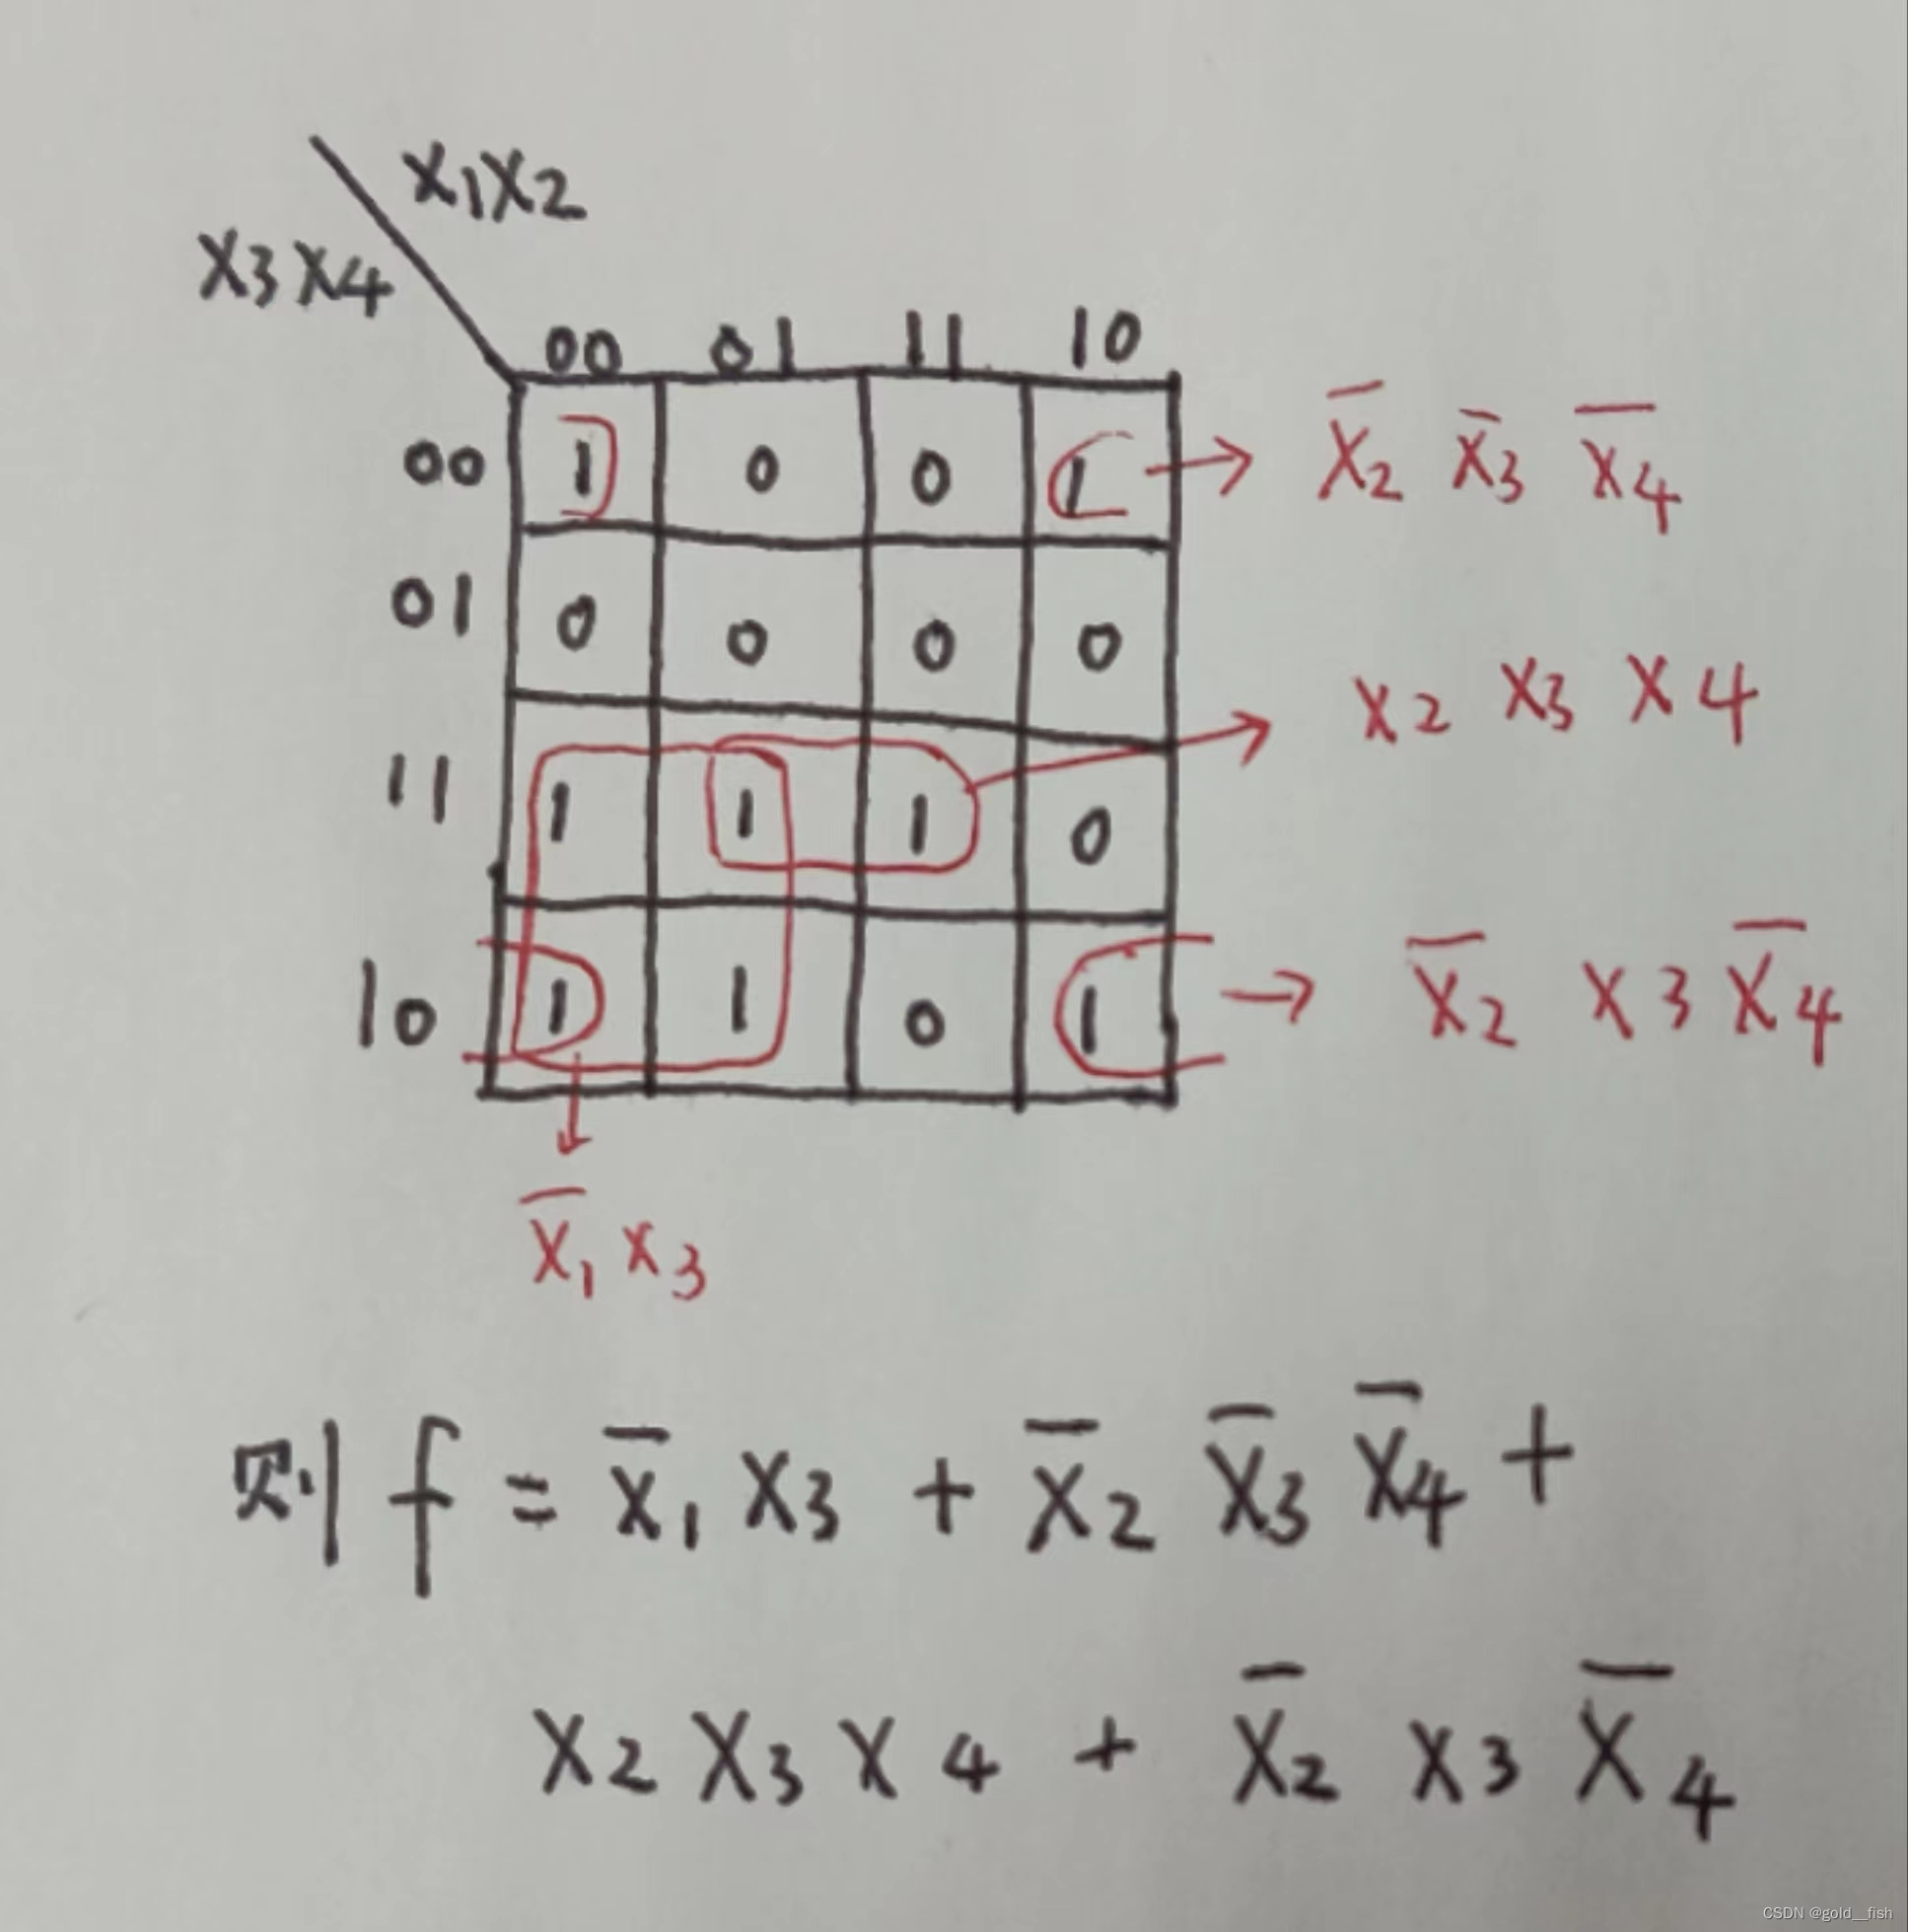 x1x2
x3x4
00 01 11 10
00 1 0 0 1 → x̄2 x̄3 x̄4
01 0 0 0 0
11 1 1 1 0 → x2 x3 x4
10 1 1 0 1 → x̄2 x3 x̄4
x̄1 x3
则 f = x̄1 x3 + x̄2 x̄3 x̄4 +
x2 x3 x4 + x̄2 x3 x̄4
CSDN @gold__fish